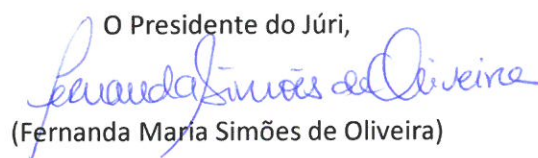 O Presidente do Júri,
Fernanda Simões de Oliveira
(Fernanda Maria Simões de Oliveira)